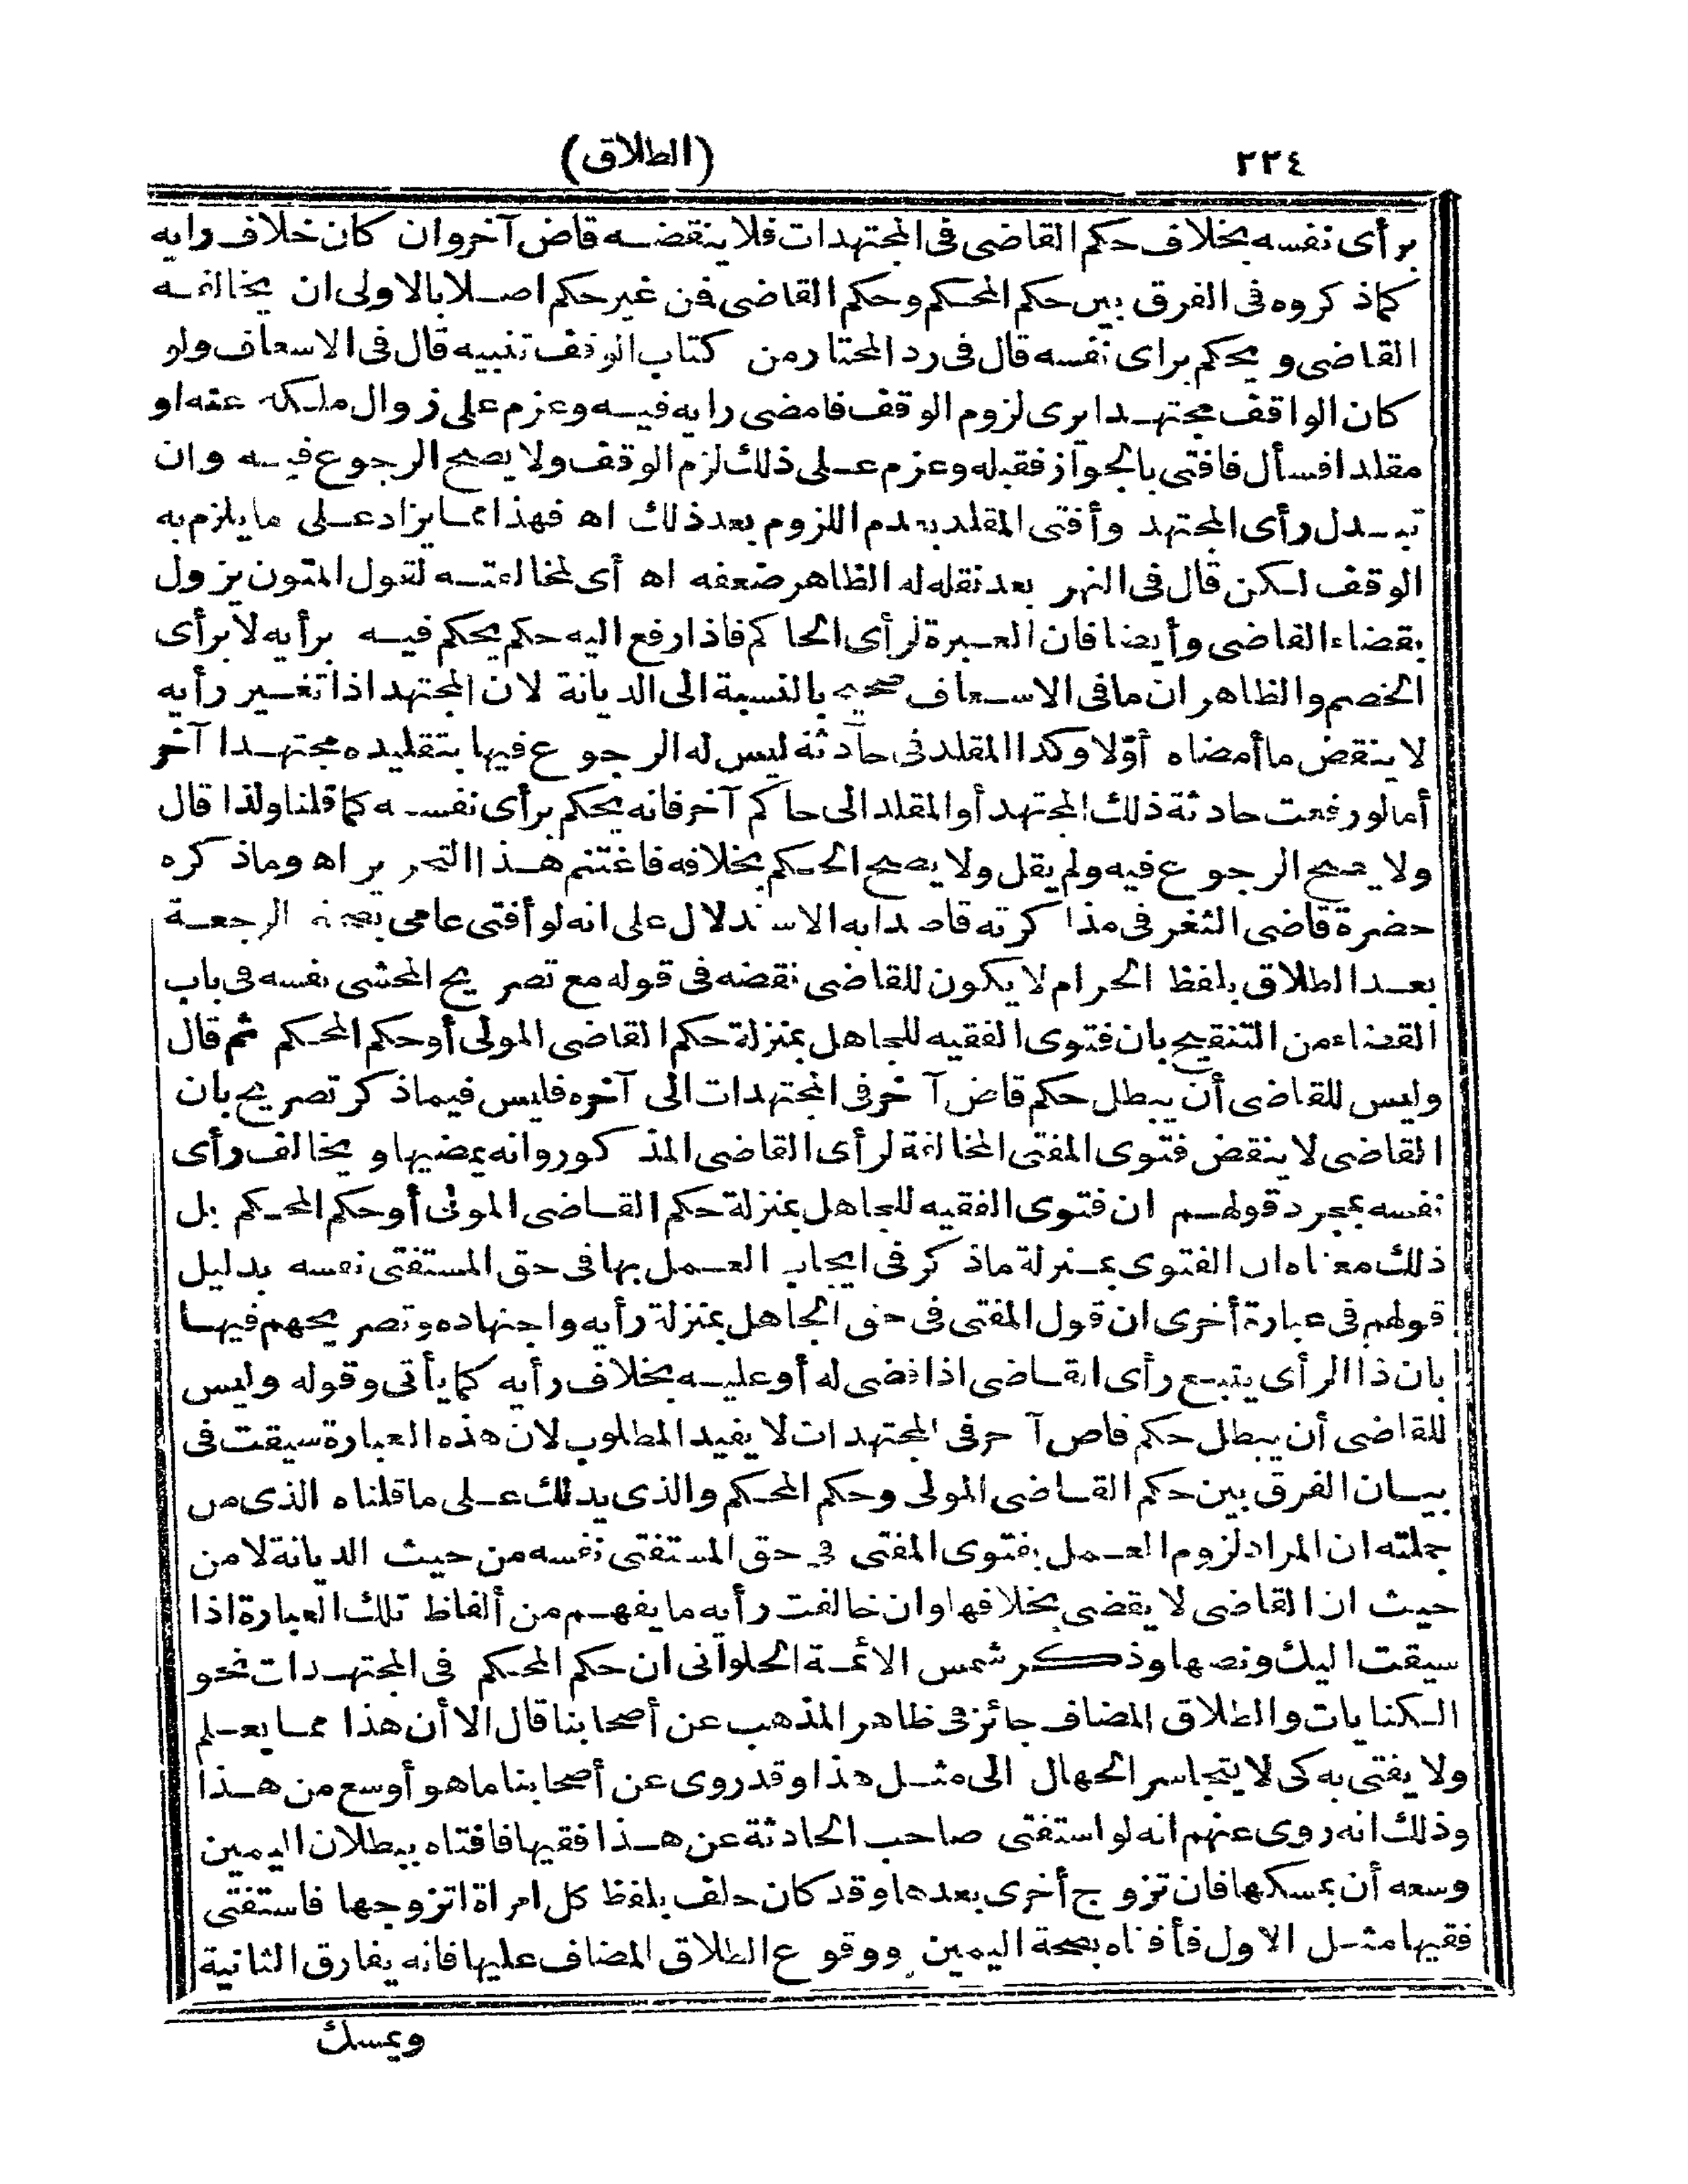 ٢٢٤
(الطلاق)
برأى نفسه بخلاف حكم القاضى فى المجتهدات فلا ينقضه قاض آخر وان كان خلاف رايه
كماذكروه فى الفرق بين حكم المحكم وحكم القاضى فن غير حكم اصلا بالاولى ان يخالفه
القاضى ويحكم براى نفسه قال فى رد المحتار من كتاب الوقف تنبيه قال فى الاسعاف ولو
كان الواقف مجتهدا يرى لزوم الوقف فامضى رايه فيه وعزم على زوال ملكه عنه او
مقلدا فسأل فافتى بالجواز فقبله وعزم على ذلك لزم الوقف ولا يصح الرجوع فيه وان
تبدل رأى المجتهد وأفتى المقلد بعدم اللزوم بعد ذلك اه فهذا مما يزاد على ما يلزم به
الوقف لكن قال فى النهر بعد نقله له الظاهر ضعفه اه أى لمخالفته لقول المتون يزول
بقضاء القاضى وأيضا فان العبرة لرأى الحاكم فاذا رفع اليه حكم يحكم فيه برأيه لا برأى
الخصم والظاهر ان مافى الاسعاف صحيح بالنسبة الى الديانة لان المجتهد اذا تغير رأيه
لا ينقض ما أمضاه أولا وكذا المقلد فى حادثة ليس له الرجوع فيها بتقليده مجتهدا آخر
أما لو رفعت حادثة ذلك المجتهد أو المقلد الى حاكم آخر فانه يحكم برأى نفسه كما قلنا ولذا قال
ولا يصح الرجوع فيه ولم يقل ولا يصح الحكم بخلافه فاغتنم هذا التحرير اه وماذكره
حضرة قاضى الثغر فى مذاكرته قاصدا به الاستدلال على انه لو أفتى عامى بصحة الرجعة
بعد الطلاق بلفظ الحرام لا يكون للقاضى نقضه فى قوله مع تصريح المحشى نفسه فى باب
القضاء من التنقيح بان فتوى الفقيه للجاهل بمنزلة حكم القاضى المولى أو حكم المحكم ثم قال
وليس للقاضى أن يبطل حكم قاض آخر فى المجتهدات الى آخره فليس فيما ذكر تصريح بان
القاضى لا ينقض فتوى المفتى المخالفة لرأى القاضى المذكور وانه يمضيها ويخالف رأى
نفسه بمجرد قولهم ان فتوى الفقيه للجاهل بمنزلة حكم القاضى المولى أو حكم المحكم بل
ذلك معناه ان الفتوى بمنزلة ماذكر فى ايجاب العمل بها فى حق المستفتى نفسه بدليل
قولهم فى عبارة أخرى ان قول المفتى فى حق الجاهل بمنزلة رأيه واجتهاده وتصريحهم فيها
بان ذا الرأى يتبع رأى القاضى اذا قضى له أو عليه بخلاف رأيه كما يأتى وقوله وليس
للقاضى أن يبطل حكم قاض آخر فى المجتهدات لا يفيد المطلوب لان هذه العبارة سيقت فى
بيان الفرق بين حكم القاضى المولى وحكم المحكم والذى يدلك على ماقلناه الذى من
جملته ان المراد لزوم العمل بفتوى المفتى فى حق المستفتى نفسه من حيث الديانة لا من
حيث ان القاضى لا يقضى بخلافها وان خالفت رأيه ما يفهم من ألفاظ تلك العبارة اذا
سيقت اليك ونصها وذكر شمس الائمة الحلوانى ان حكم المحكم فى المجتهدات نحو
الكنايات والطلاق المضاف جائز فى ظاهر المذهب عن أصحابنا قال الا أن هذا مما يعلم
ولا يفتى به كى لا يتجاسر الجهال الى مثل هذا وقد روى عن أصحابنا ماهو أوسع من هذا
وذلك انه روى عنهم انه لو استفتى صاحب الحادثة عن هذا فقيها فافتاه ببطلان اليمين
وسعه أن يمسكها فان تزوج أخرى بعدها وقد كان حلف بلفظ كل امراة اتزوجها فاستفتى
فقيها مثل الاول فأفتاه بصحة اليمين ووقوع الطلاق المضاف عليها فانه يفارق الثانية
ويمسك